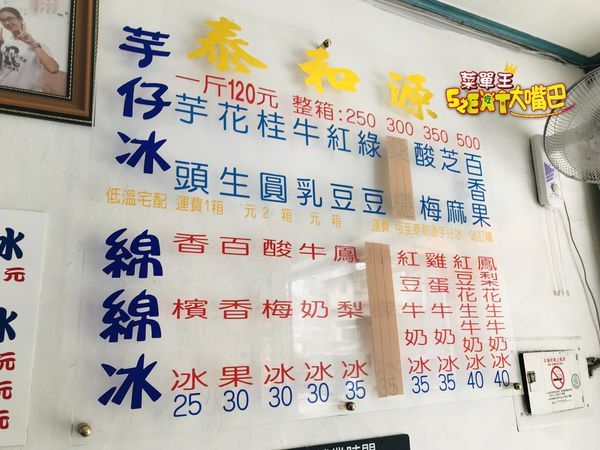 菜單王
SzEXT大嘴巴
泰和源
芋仔冰
一斤120元 整箱:250 300 350 500
芋頭
花生
桂圓
牛乳
紅豆
綠豆
酸梅
芝麻
百香果
低溫宅配 運費1箱 元2箱 元 箱 運費 可至泰和源芋仔冰 站訂購
綿綿冰
香檳冰 25
百香果 30
酸梅冰 30
牛奶冰 30
鳳梨冰 35
紅豆牛奶冰 35
雞蛋牛奶冰 35
紅豆花生牛奶冰 40
鳳梨花生牛奶冰 40
冰
元
元
元
元